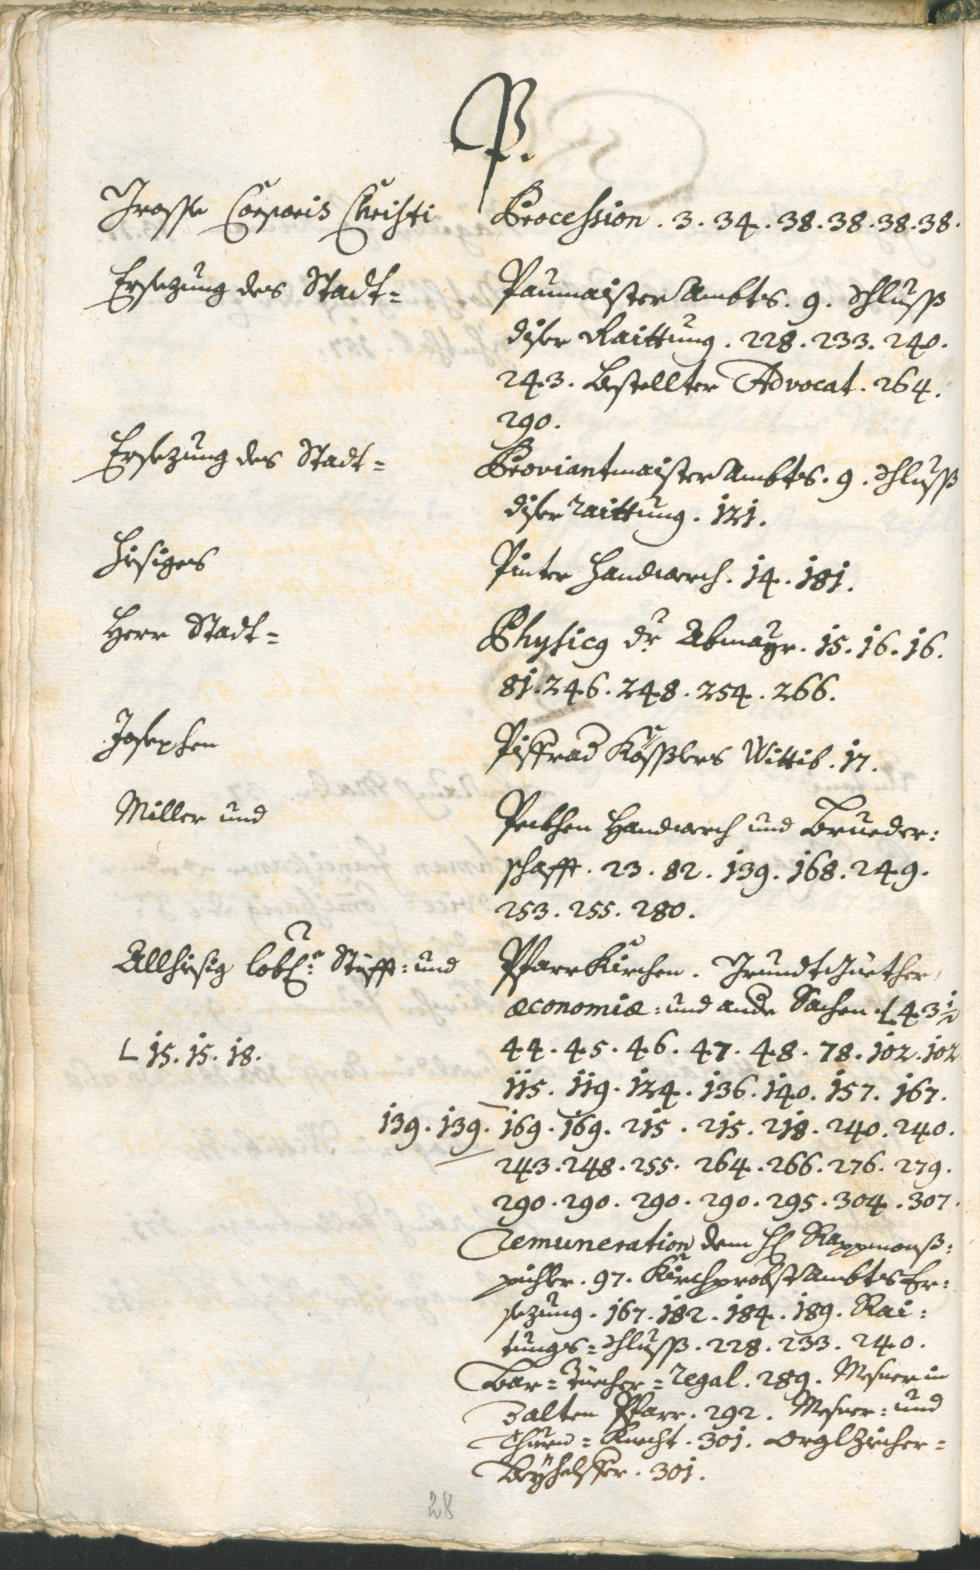 P.
Grosse Corporis Christi Procession . 3 . 34 . 38 . 38 . 38 . 38 .
Ersezung des Stadt= Paumaister Ambts . 9 . Schluss
diser Raittung . 228 . 233 . 240 .
243 . bestellter Advocat . 264 .
290 .
Ersezung des Stadt= Proviantmaister Ambts . 9 . Schluss
diser raittung . 121 .
Hiesiges Pinter Handwerch . 14 . 181 .
Herr Stadt= Physicq dr Abmayr . 15 . 16 . 16 .
81 . 246 . 248 . 254 . 266 .
Josephen Wittib . 17 .
Miller und Pekhen Handwerch und Brueder:
schafft . 23 . 82 . 139 . 168 . 249 .
253 . 255 . 280 .
Allhiesig lobl: Stüfft: und Pfarr Kürchen . Grundt Güether,
œconomiæ: und ande Sachen . L 43 ½
L 15 . 15 . 18 . 44 . 45 . 46 . 47 . 48 . 78 . 102 . 102
115 . 119 . 124 . 136 . 140 . 157 . 167 .
139 . 139 . 169 . 169 . 215 . 215 . 218 . 240 . 240 .
243 . 248 . 255 . 264 . 266 . 276 . 279 .
290 . 290 . 290 . 290 . 295 . 304 . 307 .
Remuneration dem H
pichler . 97 . Kirchprobst Ambts Er:
sezung . 167 . 182 . 184 . 189 . Rai:
tungs=Schluss . 228 . 233 . 240 .
Bar=Tüecher=regal . 289 . Mesner in
d alten Pfarr . 292 . Mesner: und
Thurn=Knecht . 301 . Orglzieher=
Beyhelffer . 301 .
28